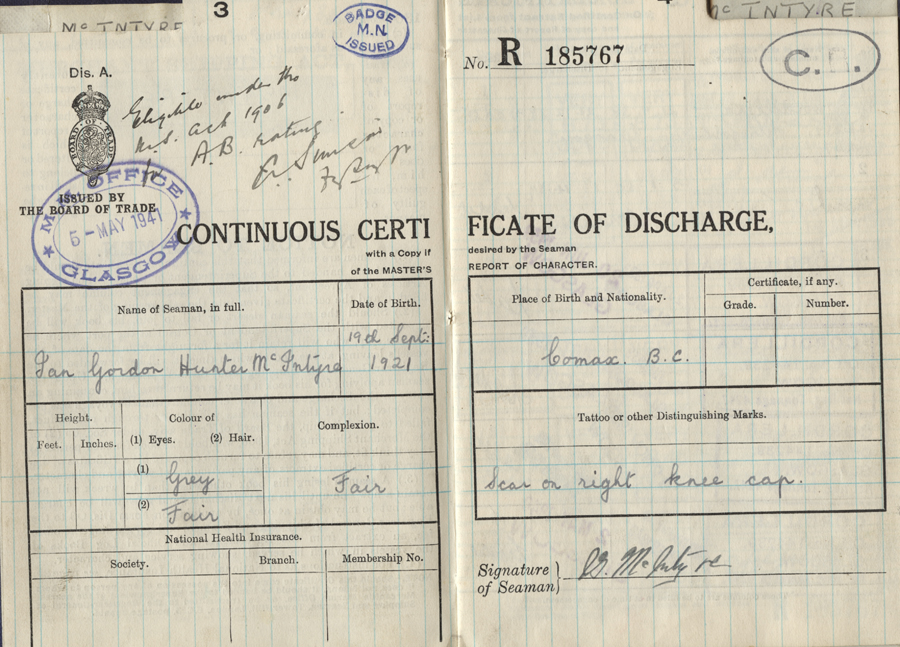 3
Mc INTYRE
Mc INTYRE
BADGE
M.N.
ISSUED
Dis. A.
Eligible under the
M.S. Act 1906
for A.B. rating.
BOARD OF TRADE
ISSUED BY
THE BOARD OF TRADE
OFFICE
5 - MAY 1941
GLASGOW
No. R 185767
C.
CONTINUOUS CERTIFICATE OF DISCHARGE,
with a Copy if desired by the Seaman
of the MASTER'S REPORT OF CHARACTER.
Name of Seaman, in full.
Date of Birth.
Ian Gordon Hunter McIntyre
19th Sept:
1921
Height.
Feet.
Inches.
Colour of
(1) Eyes. (2) Hair.
Complexion.
(1) Grey
(2) Fair
Fair
National Health Insurance.
Society.
Branch.
Membership No.
Place of Birth and Nationality.
Certificate, if any.
Grade.
Number.
Comax. B.C.
Tattoo or other Distinguishing Marks.
Scar on right knee cap.
Signature
of Seaman
McIntyre